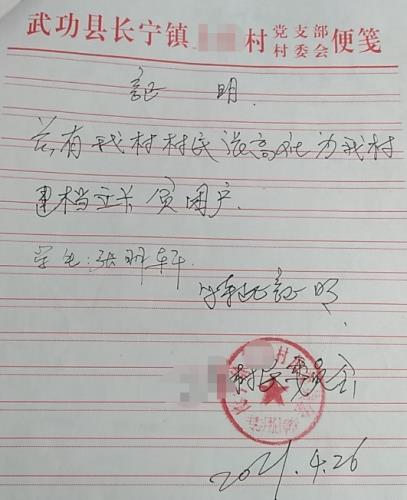 武功县长宁镇 村党支部村委会便笺
证 明
兹有我村村民 为我村
建档立卡贫困户.
学生:张 轩
特此证明
村民委员会
2021.4.26